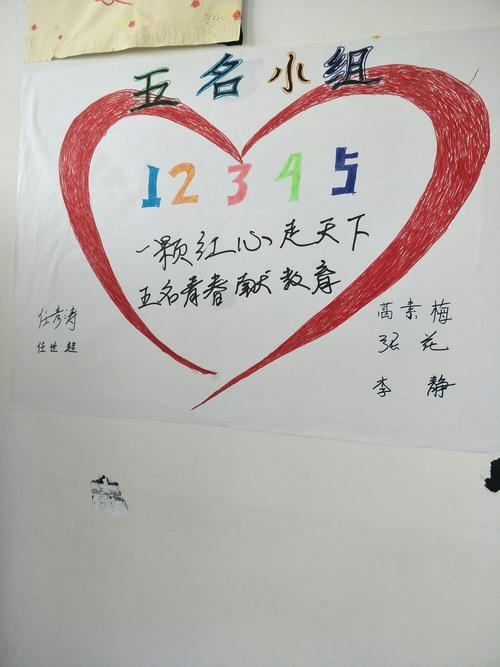 五名小组
12345
一颗红心走天下
五名青春献教育
任彦涛
任世超
高素梅
张花
李静